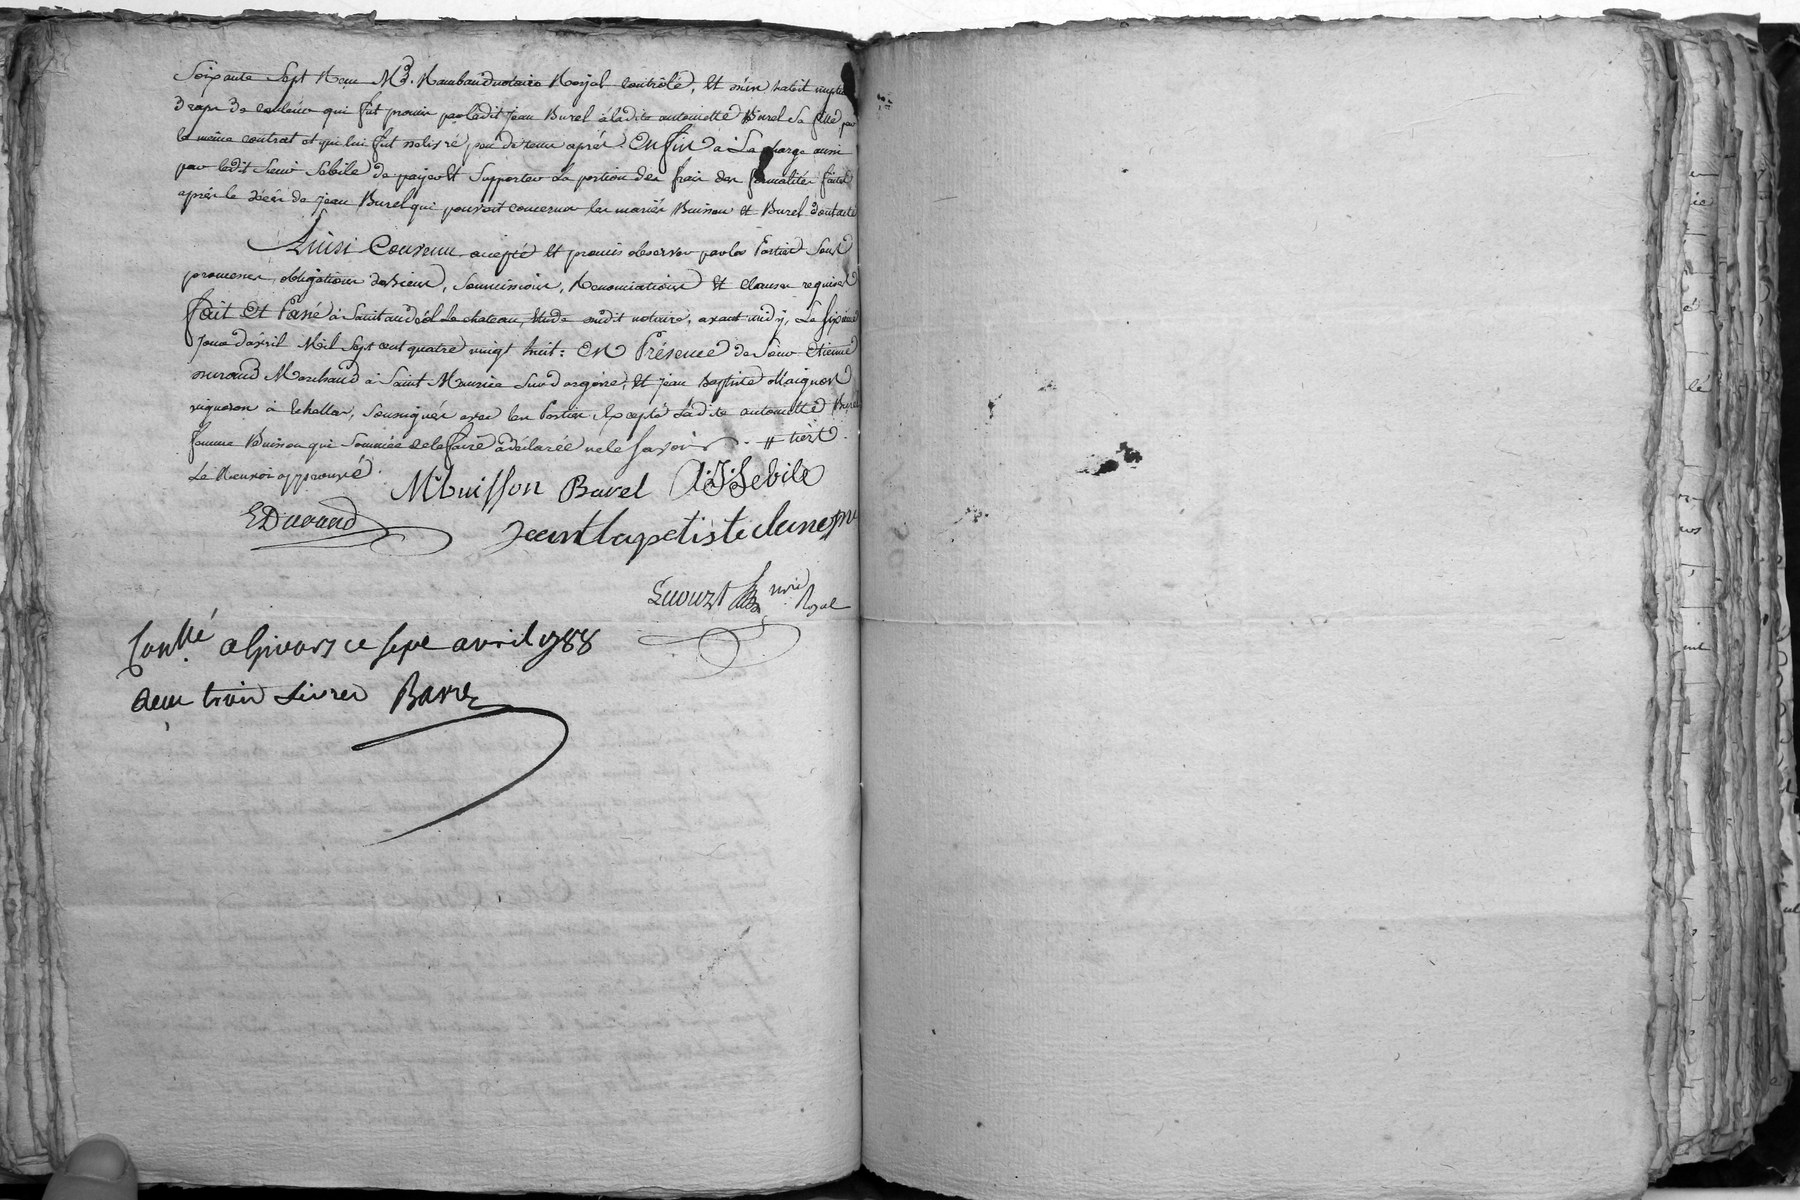 Soixante Sept Recu Me. Rambaud notaire Royal controlé, Et d'un habit nuptial
drap de couleur qui fut promis par ledit jean Burel à ladite antoinette Burel Sa fille par
le même contrat et qui lui fut delivré peu de tems après. Enfin à La charge aussi
par ledit Sieur Sebile de payer Et Supporter La portion des frais des formalités faites
après le décès de jean Burel qui pouvoit concerner les mariés Buisson Et Burel dont acte
Ainsi Convenu accepté Et promis observer par les Parties Sous
promesses, obligations des biens, Soumissions, Renonciations Et clauses requises
Fait Et Passé à Saint andéol Le chateau, Etude dudit notaire, avant midy, Le Sixieme
Jour d'avril Mil Sept cent quatre vingt huit: En Présence de Sieur Etienne
durand Marchand à Saint Maurice Sur dargoire, Et jean Baptiste
vigneron à Echallas, Soussignés avec les Parties Excepté Ladite antoinette Burel
femme Buisson qui Sommée de le faire a déclarée ne le Savoir. # tiers
Le Renvoi approuvé.
M buisson Burel A:J:Sebile
EDurand Jean bapetiste
nore Royal
Conllé a Givors ce sept avril 1788
Recu trois Livres Barre